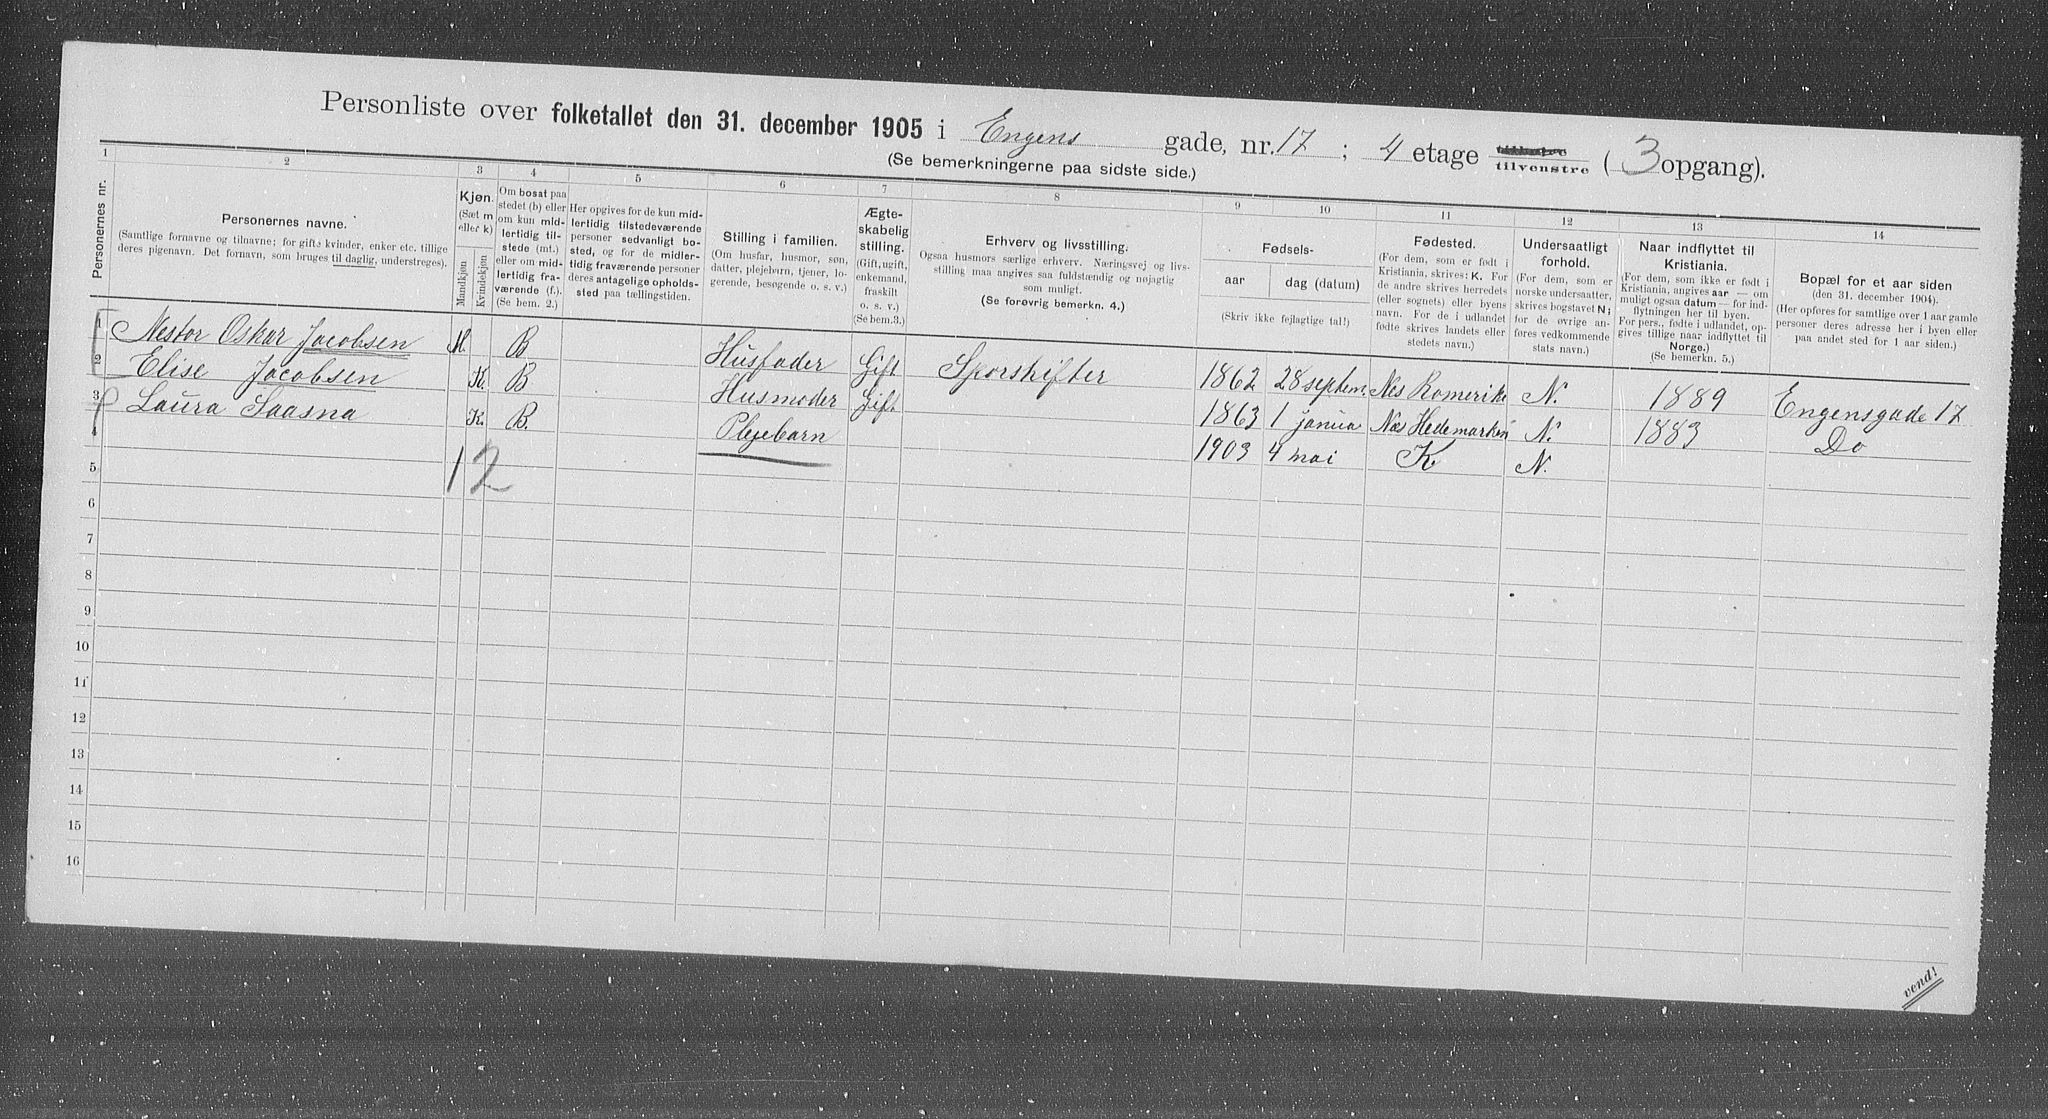 Personliste over folketallet den 31. december 1905 i Engens gade, nr. 17 ; 4 etage tilvenstre ( 3 opgang).
(Se bemerkningerne paa sidste side.)
1 2 3 4 5 6 7 8 9 10 11 12 13 14
Personernes nr.
Personernes navne.
(Samtlige fornavne og tilnavne; for gifte kvinder, enker etc. tillige
deres pigenavn. Det fornavn, som bruges til daglig, understreges).
Kjøn.
(Sæt m
eller k)
Mandkjøn
Kvindekjøn
Om bosat paa
stedet (b) eller
om kun mid-
lertidig til-
stede (mt.)
eller om mid-
lertidig fra-
værende (f.)
(Se bem. 2.)
Her opgives for de kun mid-
lertidig tilstedeværende
personer sedvanligt bo-
sted, og for de midler-
tidig fraværende personer
deres antagelige opholds-
sted paa tællingstiden.
Stilling i familien.
(Om husfar, husmor, søn,
datter, plejebarn, tjener, lo-
gerende, besøgende o. s. v.)
Ægte-
skabelig
stilling.
(Gift, ugift,
enkemand,
fraskilt
o. s. v.)
(Se bem. 3.)
Erhverv og livsstilling.
Ogsaa husmors særlige erhverv. Næringsvej og livs-
stilling maa angives saa fuldstændig og nøjagtig
som muligt.
(Se forøvrig bemerkn. 4.)
Fødsels-
aar dag (datum)
(Skriv ikke fejlagtige tal!)
Fødested.
(For dem, som er født i
Kristiania, skrives: K. For
de andre skrives herredets
(eller sognets) eller byens
navn. For de i udlandet
fødte skrives landets eller
stedets navn.)
Undersaatligt
forhold.
(For dem, som er
norske undersaatter,
skrives bogstavet N;
for de øvrige an-
føres vedkommende
stats navn.)
Naar indflyttet til
Kristiania.
(For dem, som ikke er født i
Kristiania, angives aar — om
muligt ogsaa datum — for ind-
flytningen her til byen.
For pers., fødte i udlandet, op-
gives tillige naar indflyttet til
Norge.)
(Se bemerkn. 5.)
Bopæl for et aar siden
(den 31. december 1904).
(Her opføres for samtlige over 1 aar gamle
personer deres adresse her i byen eller
paa andet sted for 1 aar siden.)
1 Nestor Oskar Jacobsen M. B Husfader Gift Sporskifter 1862 28 septem. Nes Romerike N. 1889 Engensgade 17
2 Elise Jacobsen K. B Husmoder Gift 1863 1 janua Næs Hedemarken N. 1883 Do
3 Laura Saasna K. B. Plejebarn 1903 4 mai K. N.
4
12
5
6
7
8
9
10
11
12
13
14
15
16
vend!